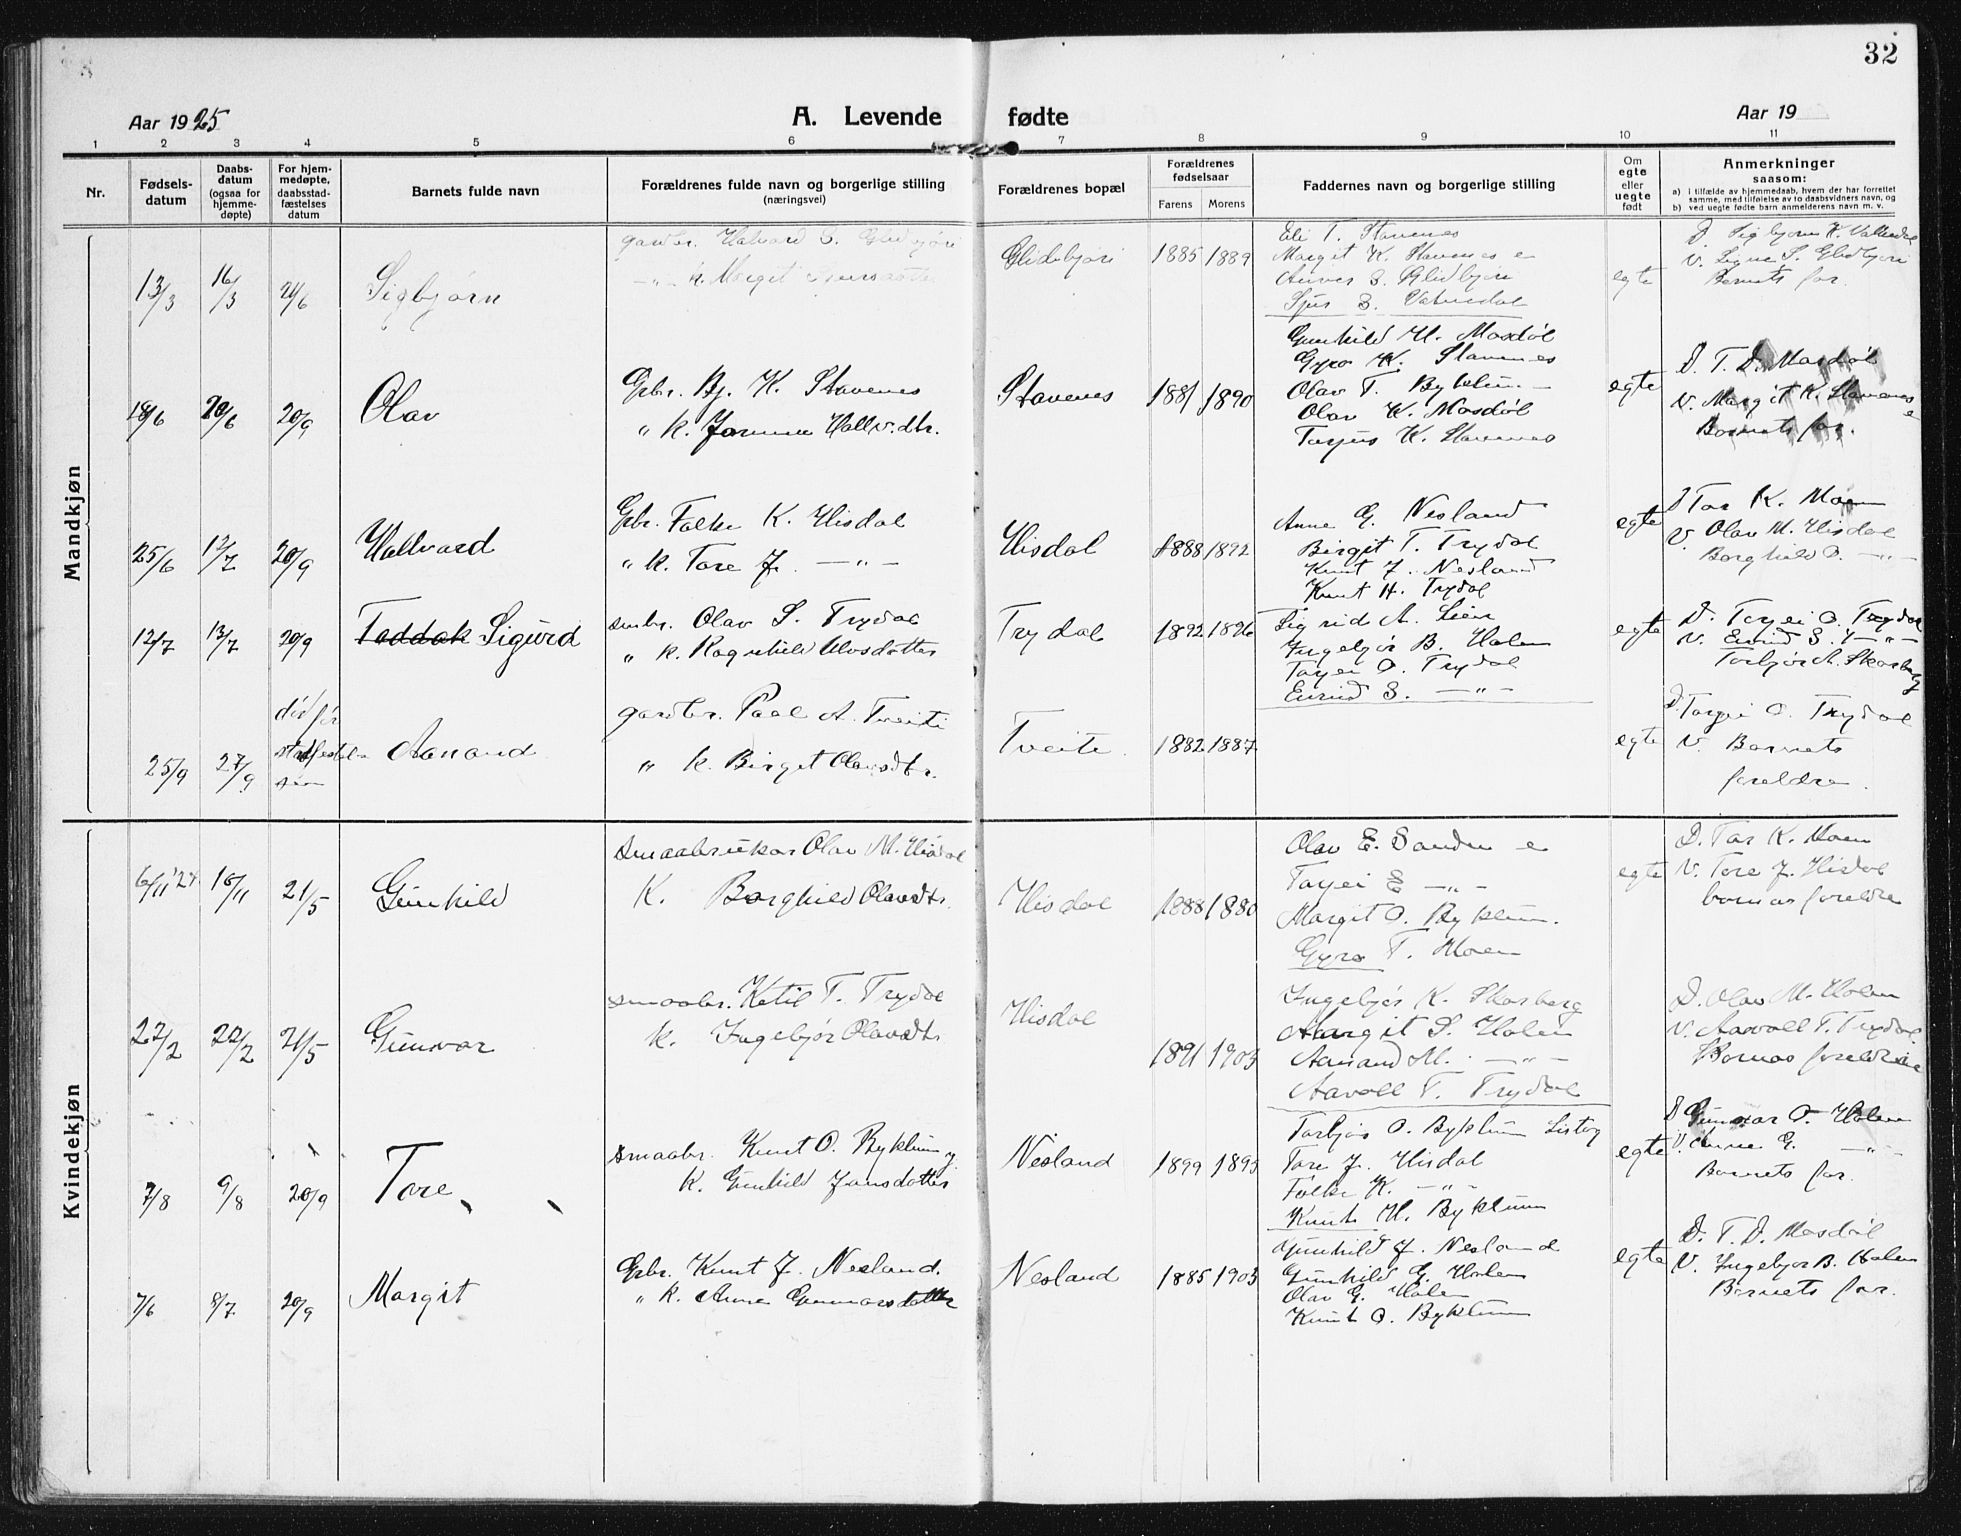 32
Aar 1925
A. Levende fødte
Aar 19
1 2 3 4 5 6 7 8 9 10 11
Nr.
Fødsels-
datum
Daabs-
datum
(ogsaa for
hjemme-
døpte)
For hjem-
medøpte,
daabsstad-
fæstelses
datum
Barnets fulde navn
Forældrenes fulde navn og borgerlige stilling
(næringsvei)
Forældrenes bopæl
Forældrenes
fødselsaar
Farens Morens
Faddernes navn og borgerlige stilling
Om
egte
eller
uegte
født
Anmerkninger
saasom:
a) i tilfælde av hjemmedaab, hvem der har forrettet
samme, med tilføielse av to daabsvidners navn, og
b) ved uegte fødte barn anmelderens navn m. v.
Mandkjøn
13/3 16/3 21/6 Sigbjørn
gardbr. Halvard S. Glidbjøri
-"- k. Margit
Glidbjøri 1885 1889
Eli T. Stavenes
Margit K. Stavenes
Anne S. Glidbjøri
Sjur S. Vatnedal
egte
D. Sigbjørn K. Vatnedal
V. Signe S. Glidbjøri
Barnets for.
18/6 20/6 20/9 Olav
Gbr. Bj. K. Stavenes
" k. Jorunn Hallv.dtr.
Stavenes 1881 1890
Gunhild H. Mosdøl
Gyro K. Stavenes
Olav T. Byklum
Olav K. Mosdøl
Tarjus K. Stavenes
egte
D. T. D. Mosdøl
V. Margit K. Stavenes
Barnets for.
25/6 12/7 20/9 Hallvard
Gbr. Folke K. Hisdal
" k. Tore J. -"-
Hisdal 1888 1892
Anne G. Nesland
Birgit T. Trydal
Knut J. Nesland
Knut H. Trydal
egte
D Tor K. Moen
V. Olav M. Hisdal
Borghild O. -"-
12/7 13/7 20/9 Taddak Sigurd
smbr. Olav S. Trydal
" k. Ragnhild Olvsdotter
Trydal 1892 1896
Sigrid A. Lien
Ingebjør B. Holen
Torjei O. Trydal
Eivind S. -"-
egte
D. Torjei O. Trydal
V. Eivind S. -"-
Torbjør A. Skarberg
25/9 27/9
død før
stadfestel-
sen
Aanand
gardbr. Paal A. Tveiti
" k. Birget Olavsdtr.
Tveite 1882 1887
egte
D. Torjei O. Trydal
V. Barnets
foreldre.
Kvindekjøn
6/11 '24 16/11 21/5 Gunhild
smaabrukar Olav M. Hisdal
K. Borghild Olavsdtr.
Hisdal 1888 1880
Olav E. Sanden
Torjei E -"-
Margit O. Byklum.
Gyro T. Moen
egte
D. Tor K. Moen
V. Tore J. Hisdal
bornas foreldre
22/2 22/2 21/5 Gunvor
smaabr. Ketil T. Trydal
k. Ingebjør Olavsdtr
Hisdal
1891 1903
Ingebjør K. Skarberg
Margit S. Holen
Aanund M. -"-
Aavoll T. Trydal
D. Olav M. Holen
V. Aavoll T. Trydal
Bornas foreldre
7/8 9/8 20/9 Tore
smaabr. Knut O. Byklum
k. Gunhild Jonsdotter
Nesland 1899 1895
Torbjør O. Byklum
Tore J. Hisdal
Folke K. -"-
Knut H. Byklum
egte
D Gunnar O. Holen
V. Anne G. -"-
Barnets for.
7/6 8/7 20/9 Margit
Gbr. Knut J. Nesland.
" k. Anne Gunnarsdotter
Nesland 1885 1903
Gunhild J. Nesland
Gunhild G. Holen
Olav G. Holen
Knut O. Byklum
egte
D. T. D. Mosdøl
V. Ingebjør B. Holen
Barnets for.